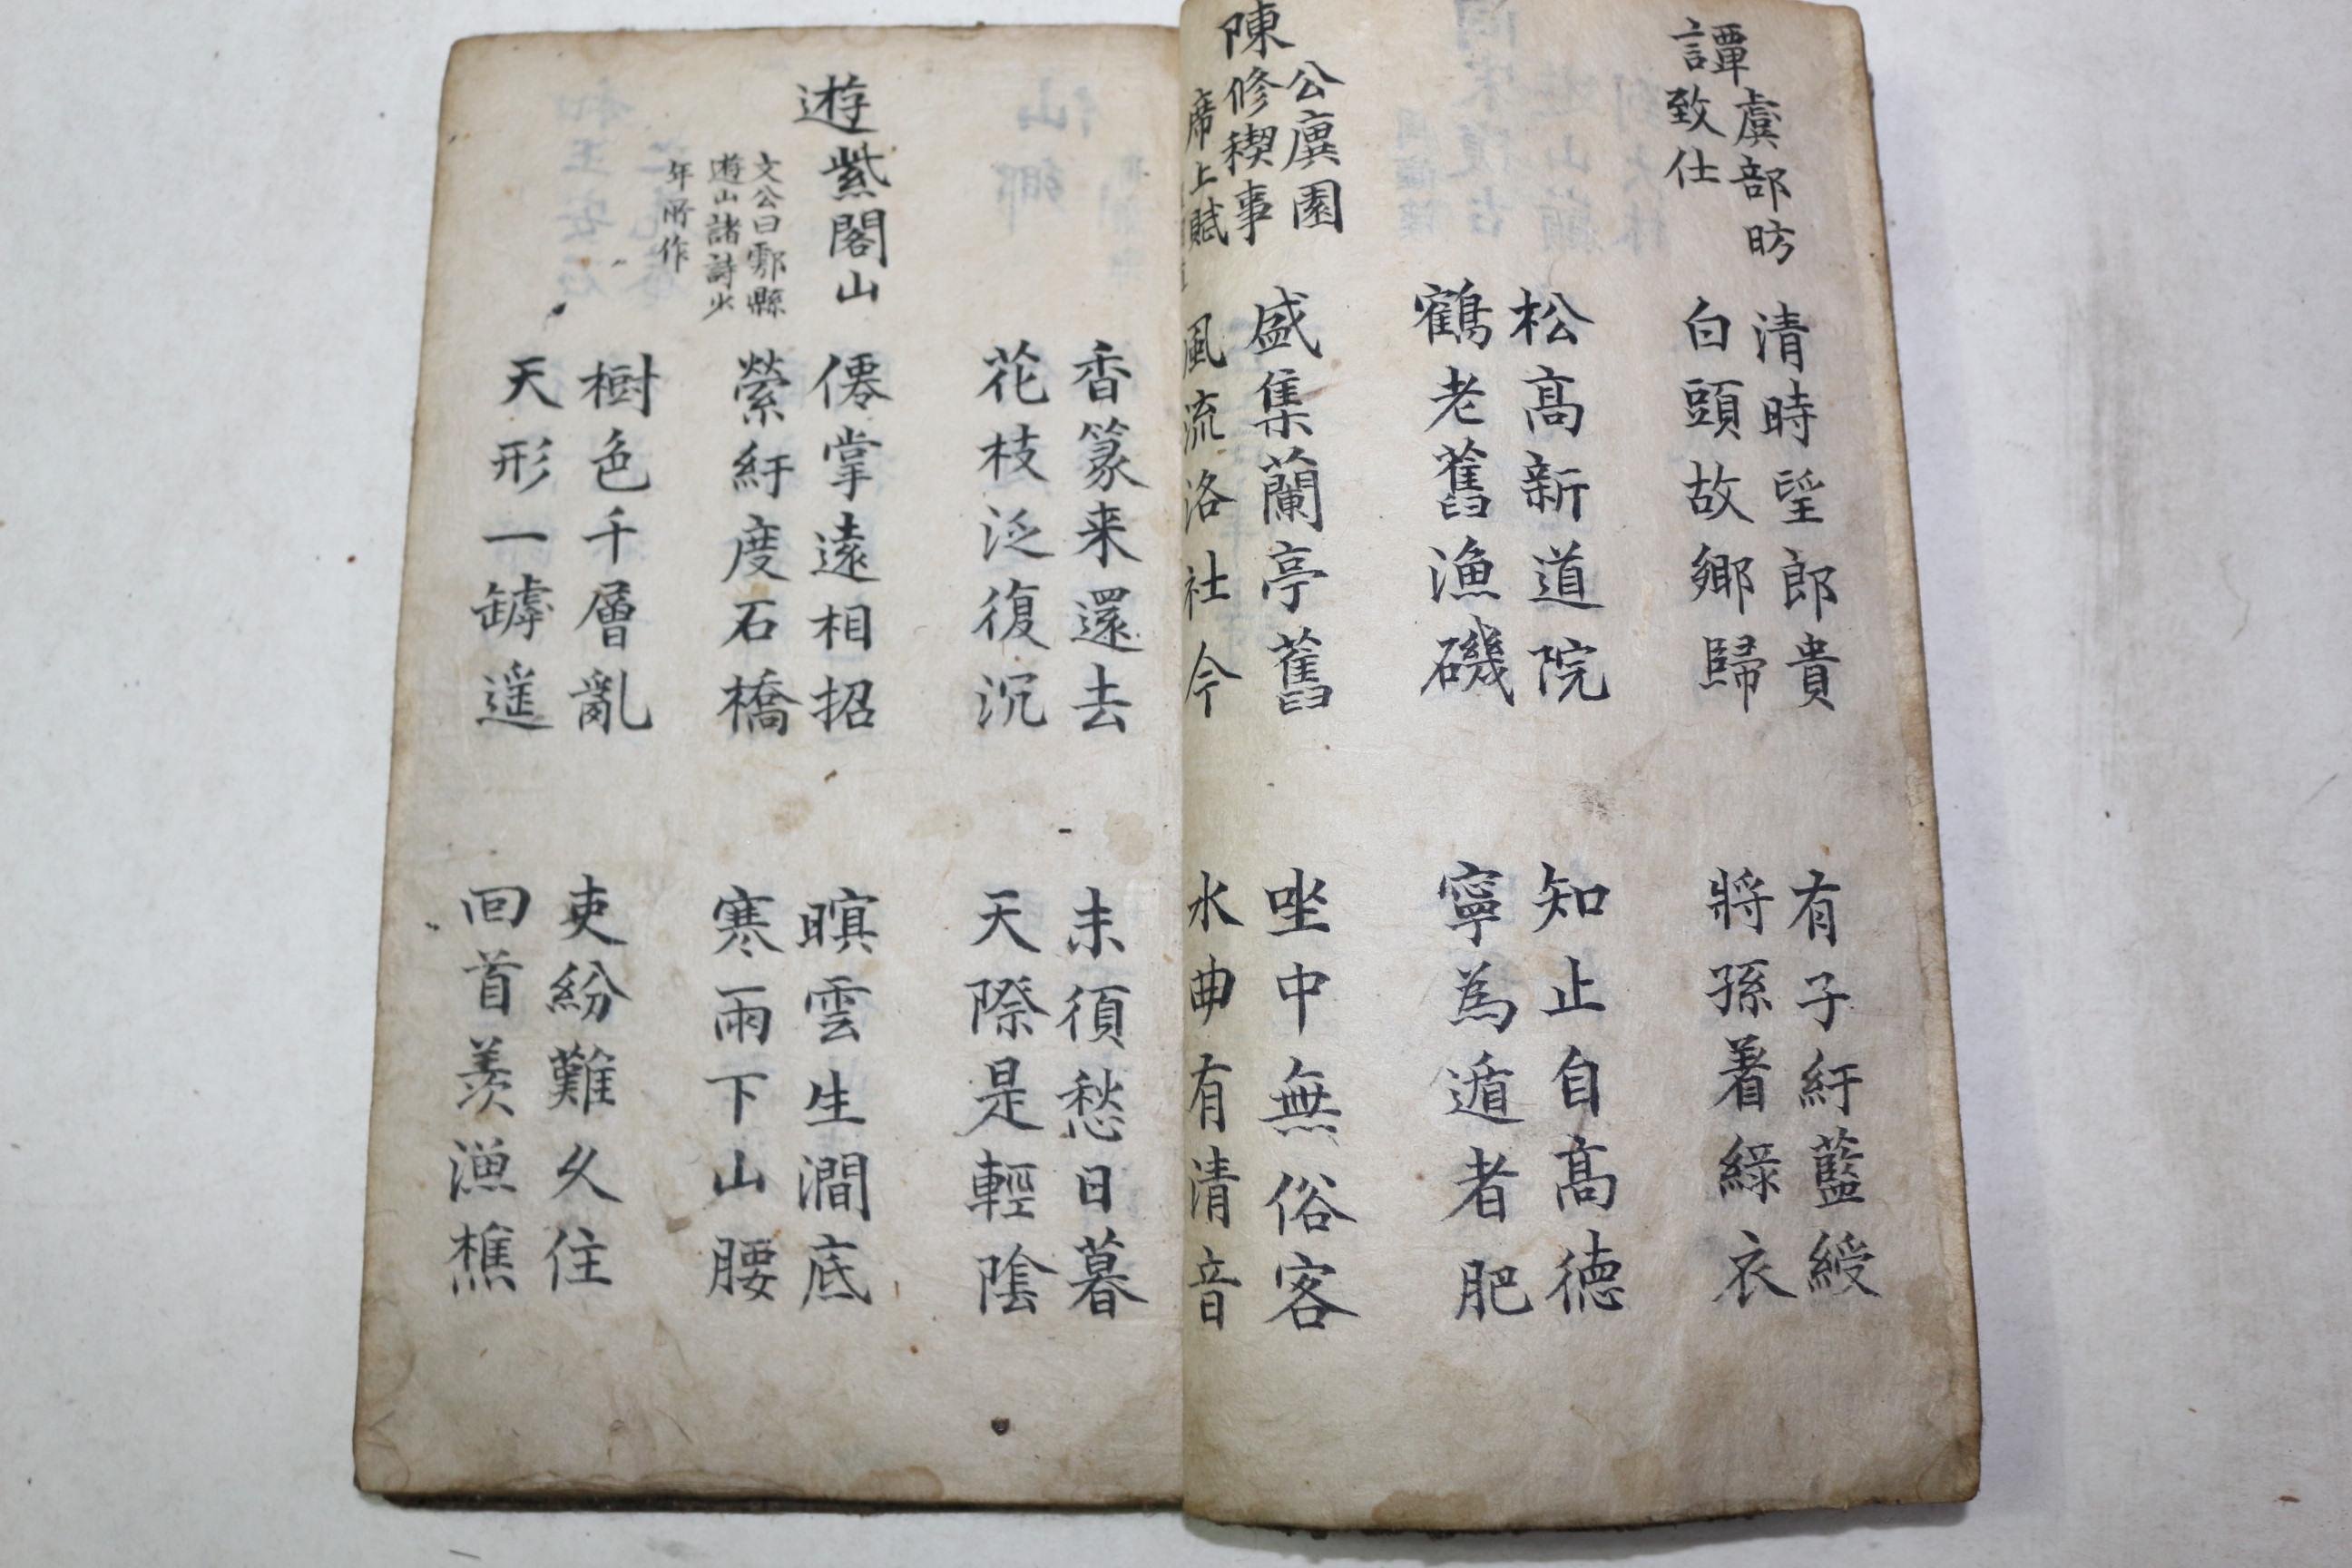 譚虞部昉
致仕
清時望郎貴
白頭故鄉歸
有子紆藍綬
將孫着綠衣
松髙新道院
鶴老舊漁磯
知止自髙德
寧為遁者肥
陳公廙園
修禊事
席上賦
盛集蘭亭舊
風流洛社今
坐中無俗客
水曲有清音
香篆来還去
花枝泛復沉
未須愁日暮
天際是輕陰
遊紫閣山
文公曰鄠縣
遊山諸詩少
年所作
僊掌遠相招
縈紆度石橋
暝雲生澗底
寒雨下山腰
樹色千層亂
天形一罅遥
吏紛難久住
回首羨漁樵